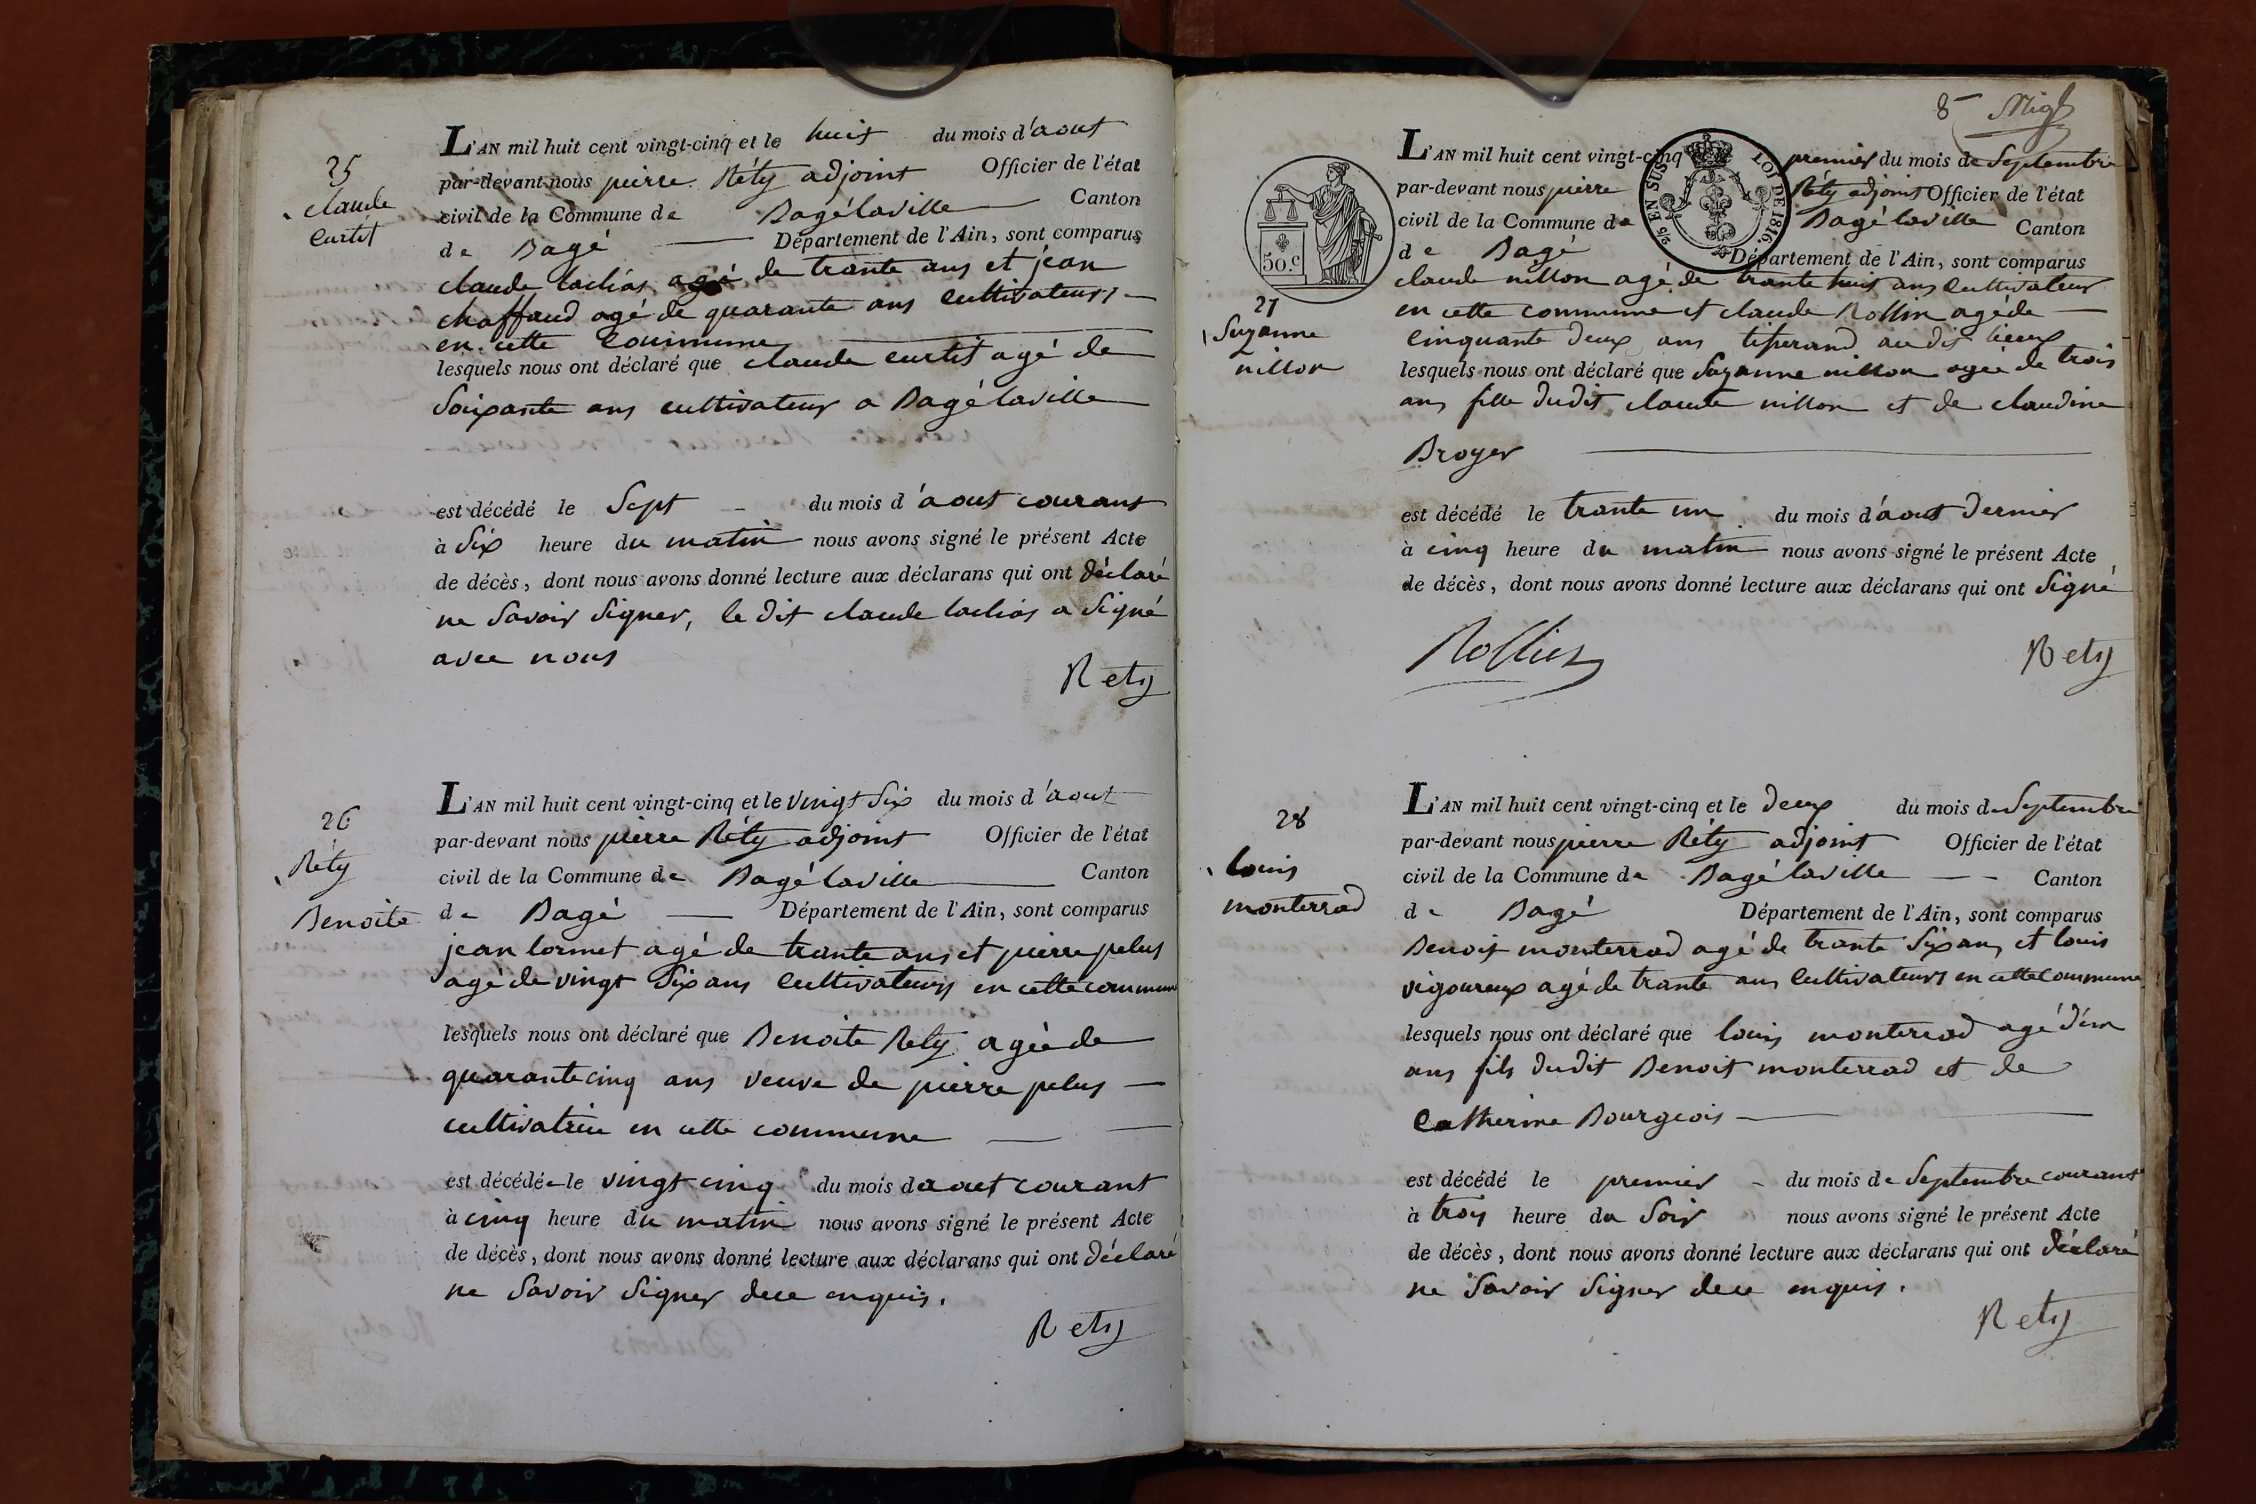 25
claude
curtil
L'AN mil huit cent vingt-cinq et le huit du mois d'aout
par-devant nous pierre Réty adjoint Officier de l'état
civil de la Commune de Bagélaville Canton
de Bagé Département de l'Ain, sont comparus
claude lachias agé de trante ans et jean
chaffaud agé de quarante ans cultivateurs
en cette commune
lesquels nous ont déclaré que claude curtil agé de
Soixante ans cultivateur a Bagélaville
est décédé le Sept du mois d'aout courant
à Six heure du matin nous avons signé le présent Acte
de décès, dont nous avons donné lecture aux déclarans qui ont déclaré
ne Savoir Signer, le dit claude lachias a Signé
avec nous
Rety
26
Réty
Benoite
L'AN mil huit cent vingt-cinq et le vingt Six du mois d'aout
par-devant nous pierre Réty adjoint Officier de l'état
civil de la Commune de Bagélaville Canton
de Bagé Département de l'Ain, sont comparus
jean lormet agé de trante ans et pierre pelus
agé de vingt Six ans cultivateurs en cette commune
lesquels nous ont déclaré que Benoite Rety agée de
quarante cinq ans veuve de pierre pelus
cultivatrice en cette commune
est décédée le vingt cinq du mois daout courant
à cinq heure du matin nous avons signé le présent Acte
de décès, dont nous avons donné lecture aux déclarans qui ont déclaré
ne Savoir Signer dece enquis.
Rety
8
50.c
EN SUS LOI DE 1816.
27
Suzanne
nillon
L'AN mil huit cent vingt-cinq premier du mois de Septembre
par-devant nous pierre Réty adjoint Officier de l'état
civil de la Commune de Bagélaville Canton
de Bagé Département de l'Ain, sont comparus
claude nillon agé de trante huit ans cultivateur
en cette commune et claude Rollin agé de
cinquante deux ans tisserand au dit lieux
lesquels nous ont déclaré que Suzanne nillon agée de trois
ans fille dudit claude nillon et de claudine
Broyer
est décédé le trante un du mois d'aout dernier
à cinq heure du matin nous avons signé le présent Acte
de décès, dont nous avons donné lecture aux déclarans qui ont Signé
Rollin
Rety
28
louis
monterrad
L'AN mil huit cent vingt-cinq et le deux du mois de Septembre
par-devant nous pierre Réty adjoint Officier de l'état
civil de la Commune de Bagélaville Canton
de Bagé Département de l'Ain, sont comparus
Benoit monterrad agé de trante Six ans et louis
vigoureux agé de trante ans cultivateurs en cette commune
lesquels nous ont déclaré que louis monterrad agé d'un
ans fils dudit Benoit monterrad et de
Catherine Bourgeois
est décédé le premier du mois de Septembre courant
à trois heure du Soir nous avons signé le présent Acte
de décès, dont nous avons donné lecture aux déclarans qui ont déclaré
ne Savoir Signer dece enquis.
Rety